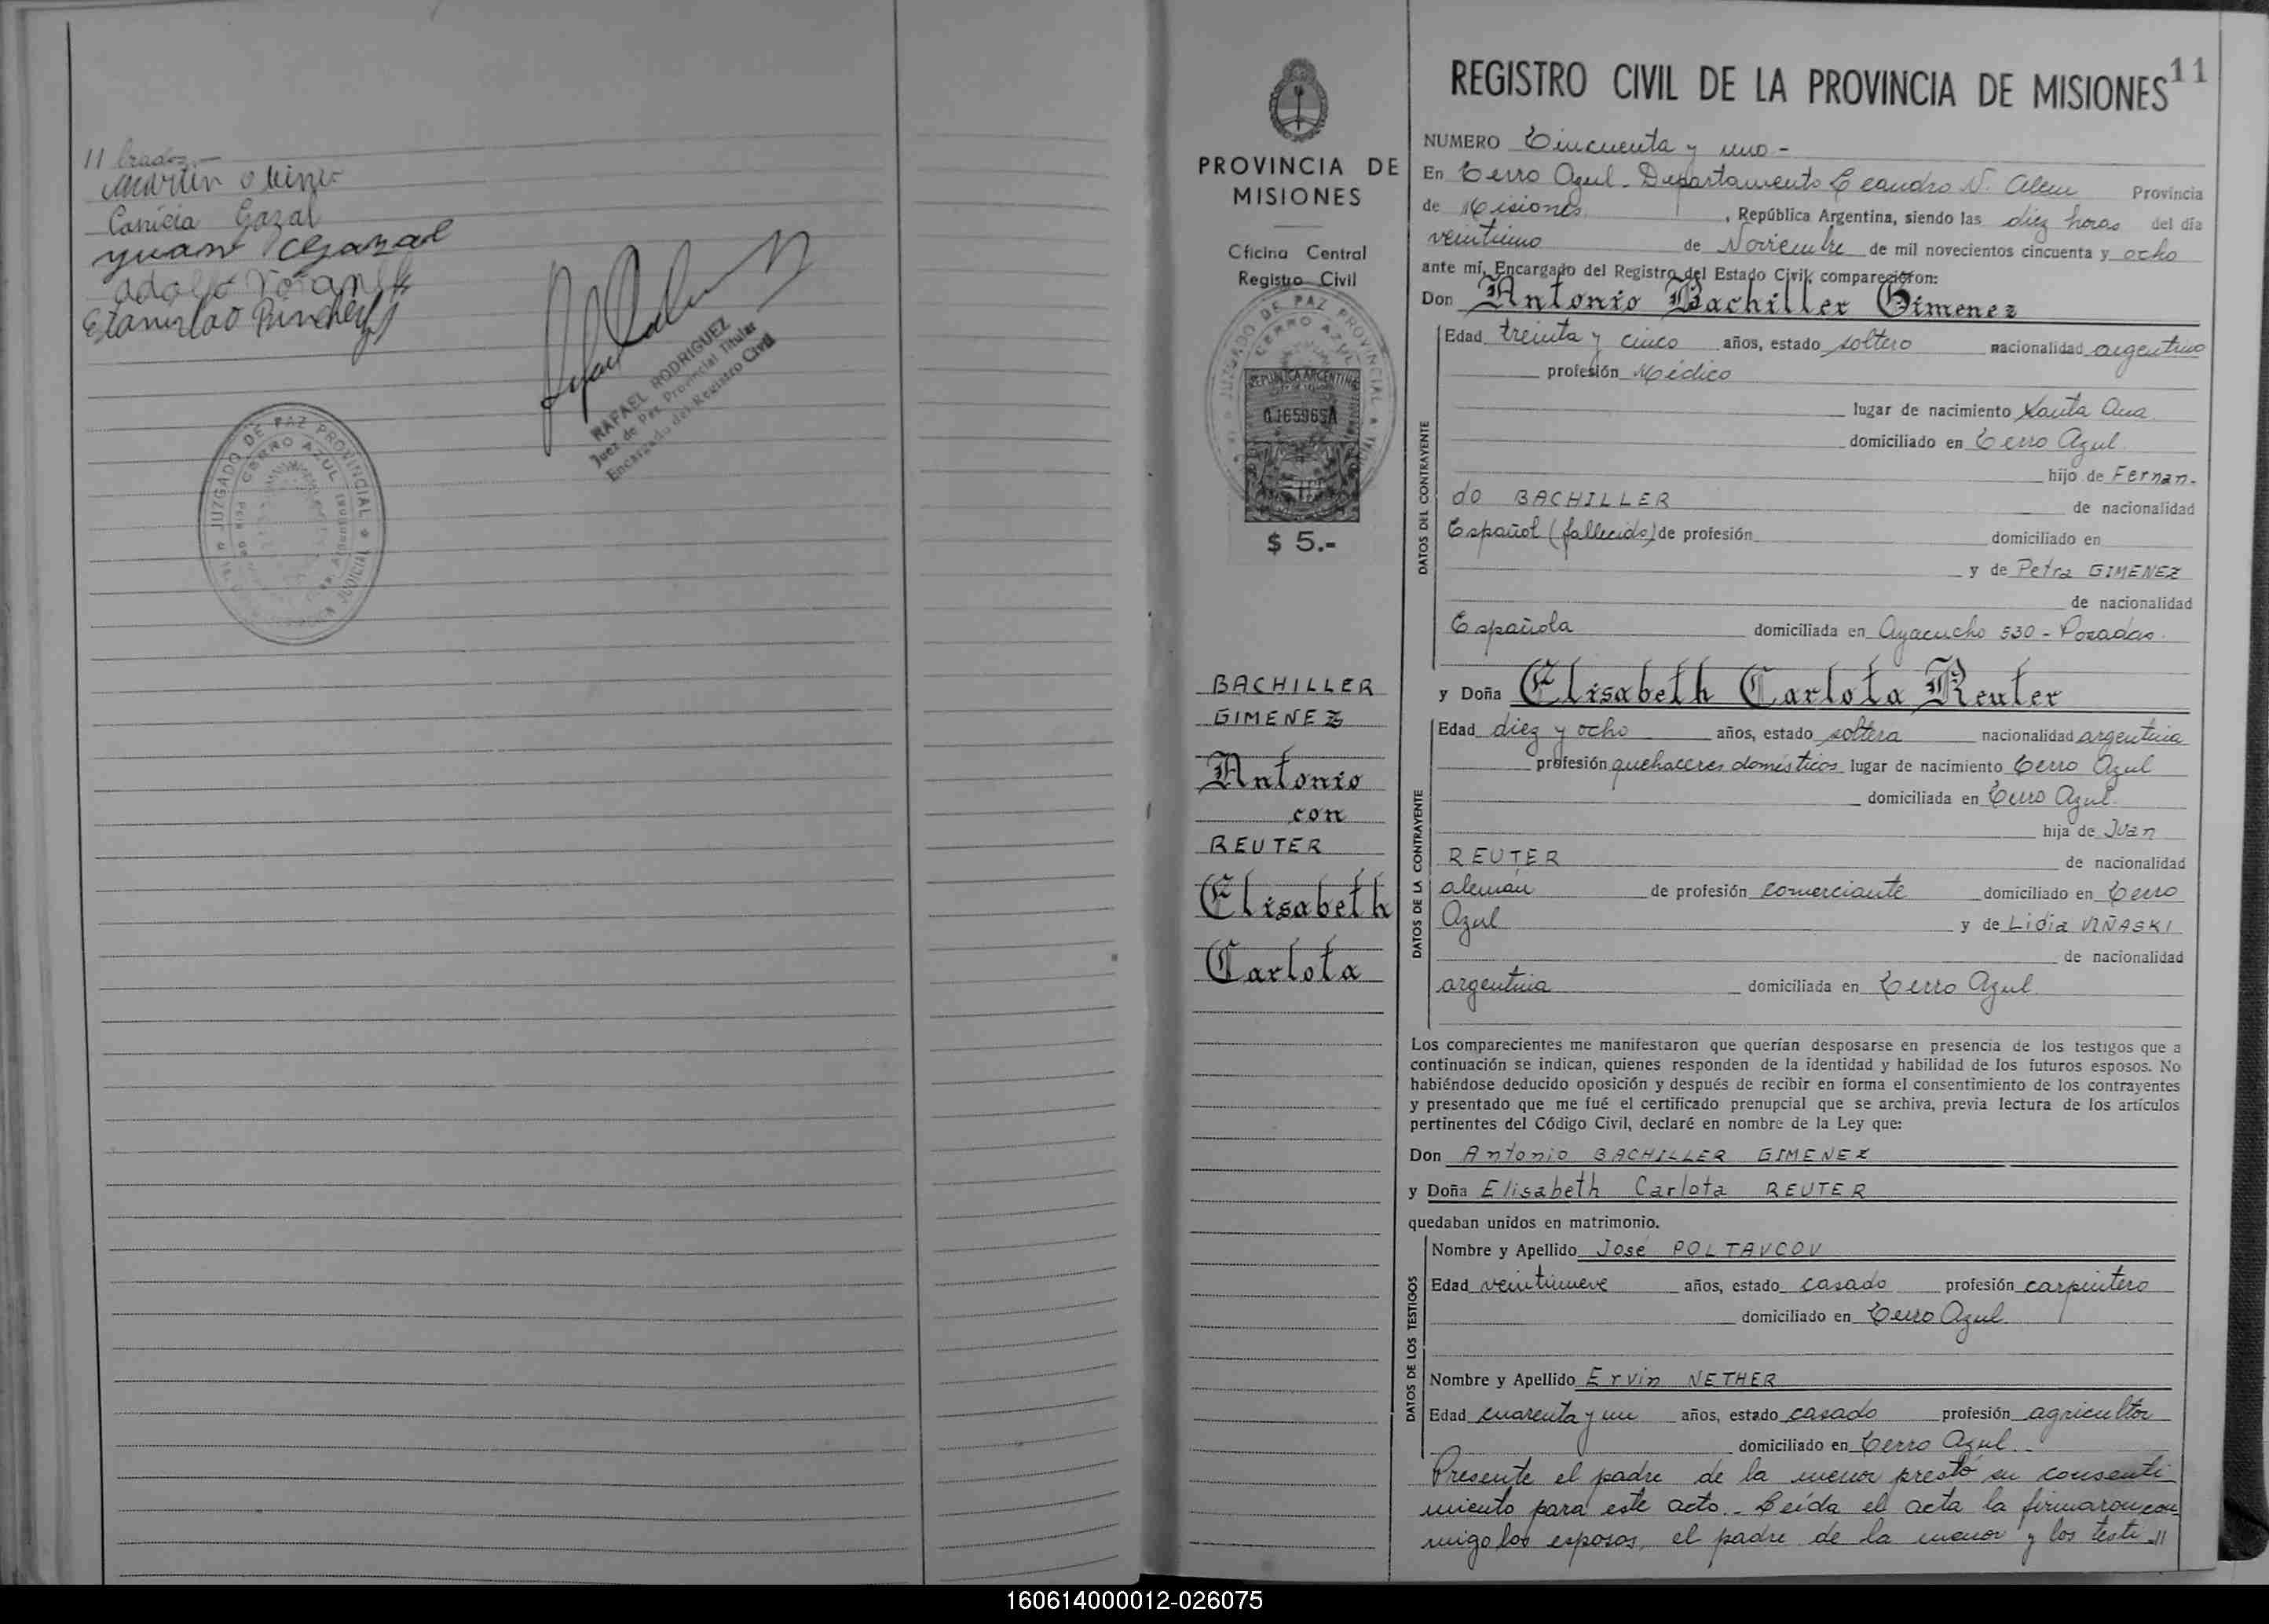 11
Martin
Gazal
Juan
Adolfo
Estanislao
RAFAEL RODRIGUEZ
Juez de Paz Provincial Titular
Encargado del Registro Civil
JUZGADO DE PAZ PROVINCIAL
CERRO AZUL
PROVINCIA DE
MISIONES
Oficina Central
Registro Civil
JUZGADO DE PAZ PROVINCIAL
CERRO AZUL
REPUBLICA ARGENTINA
0.165965A
$ 5.-
BACHILLER
GIMENEZ
Antonio
con
REUTER
Elisabeth
Carlota
REGISTRO CIVIL DE LA PROVINCIA DE MISIONES 11
NUMERO Cincuenta y uno -
En Cerro Azul - Departamento Leandro N. Alem Provincia
de Misiones, República Argentina, siendo las diez horas del día
veintiuno de Noviembre de mil novecientos cincuenta y ocho
ante mí, Encargado del Registro del Estado Civil, comparecieron:
Don Antonio Bachiller Gimenez
DATOS DEL CONTRAYENTE
Edad treinta y cinco años, estado soltero nacionalidad argentino
profesión Médico
lugar de nacimiento Santa Ana
domiciliado en Cerro Azul
hijo de Fernan-
do BACHILLER
de nacionalidad
Español (fallecido) de profesión domiciliado en
y de Petra GIMENEZ
de nacionalidad
Española domiciliada en Ayacucho 530 - Posadas
y Doña Elisabeth Carlota Reuter
DATOS DE LA CONTRAYENTE
Edad diez y ocho años, estado soltera nacionalidad argentina
profesión quehaceres domésticos lugar de nacimiento Cerro Azul
domiciliada en Cerro Azul.
hija de Juan
REUTER de nacionalidad
alemán de profesión comerciante domiciliado en Cerro
Azul y de Lidia VIÑASKI
de nacionalidad
argentina domiciliada en Cerro Azul
Los comparecientes me manifestaron que querían desposarse en presencia de los testigos que a
continuación se indican, quienes responden de la identidad y habilidad de los futuros esposos. No
habiéndose deducido oposición y después de recibir en forma el consentimiento de los contrayentes
y presentado que me fué el certificado prenupcial que se archiva, previa lectura de los artículos
pertinentes del Código Civil, declaré en nombre de la Ley que:
Don Antonio BACHILLER GIMENEZ
y Doña Elisabeth Carlota REUTER
quedaban unidos en matrimonio.
DATOS DE LOS TESTIGOS
Nombre y Apellido José POLTAVCOV
Edad veintinueve años, estado casado profesión carpintero
domiciliado en Cerro Azul
Nombre y Apellido Ervin NETHER
Edad cuarenta y un años, estado casado profesión agricultor
domiciliado en Cerro Azul.-
Presente el padre de la menor prestó su consenti-
miento para este acto.- Leída el acta la firmaron con-
migo los esposos, el padre de la menor y los testi-//
160614000012-026075